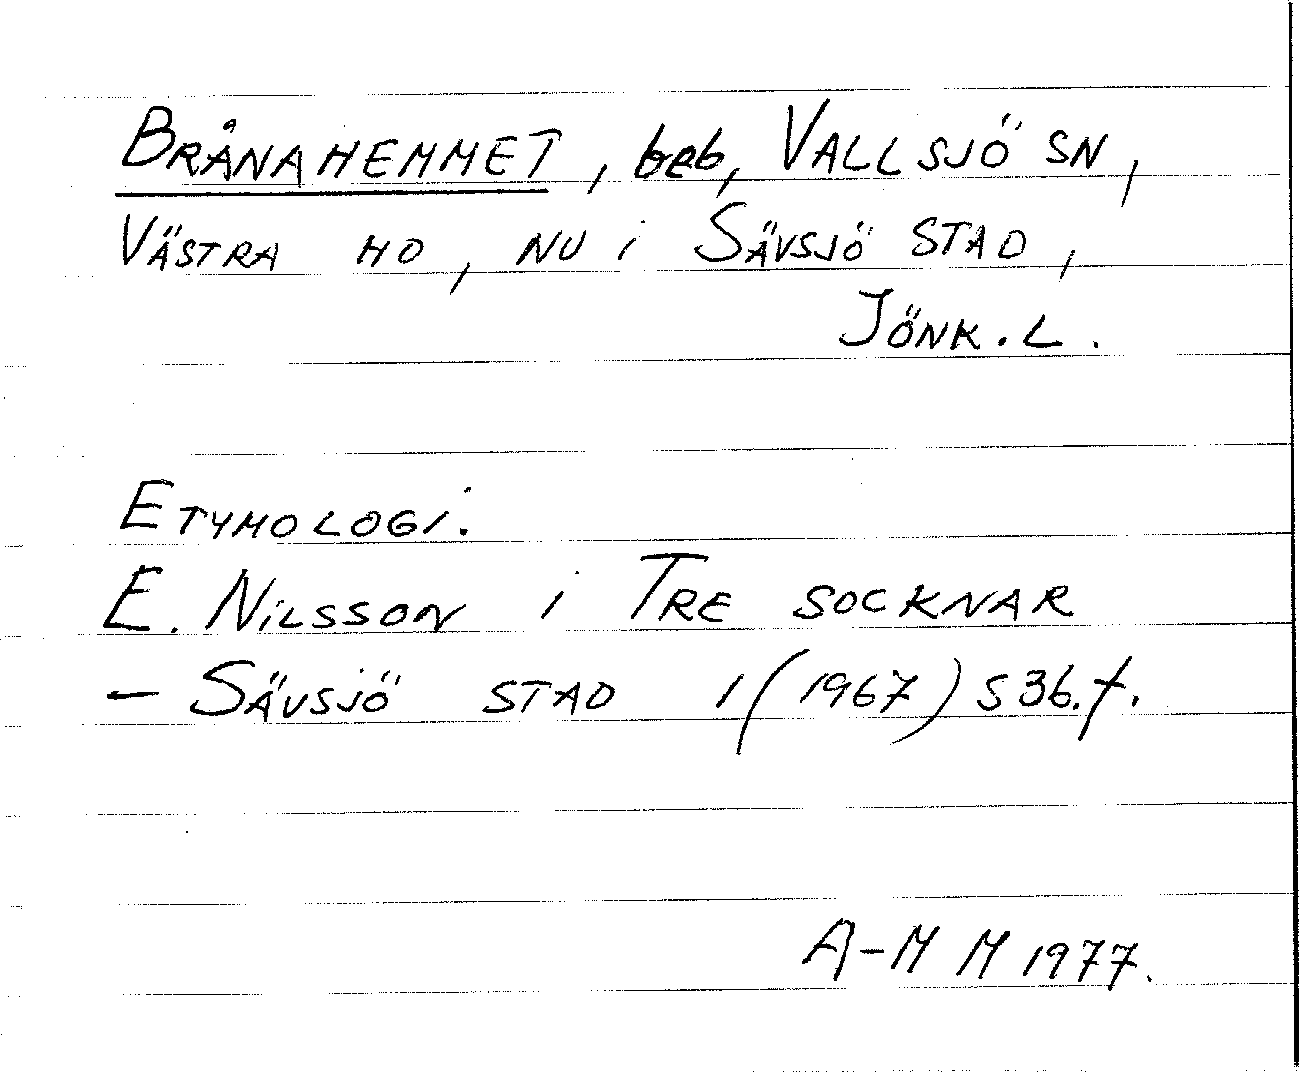 BRÅNAHEMMET, beb, VALLSJÖ SN,
VÄSTRA HD, NU i SÄVSJÖ STAD,
JÖNK. L.
ETYMOLOGI:
E. NILSSON i TRE SOCKNAR
– SÄVSJÖ STAD 1 (1967) S 36. f.
A-M M 1977.